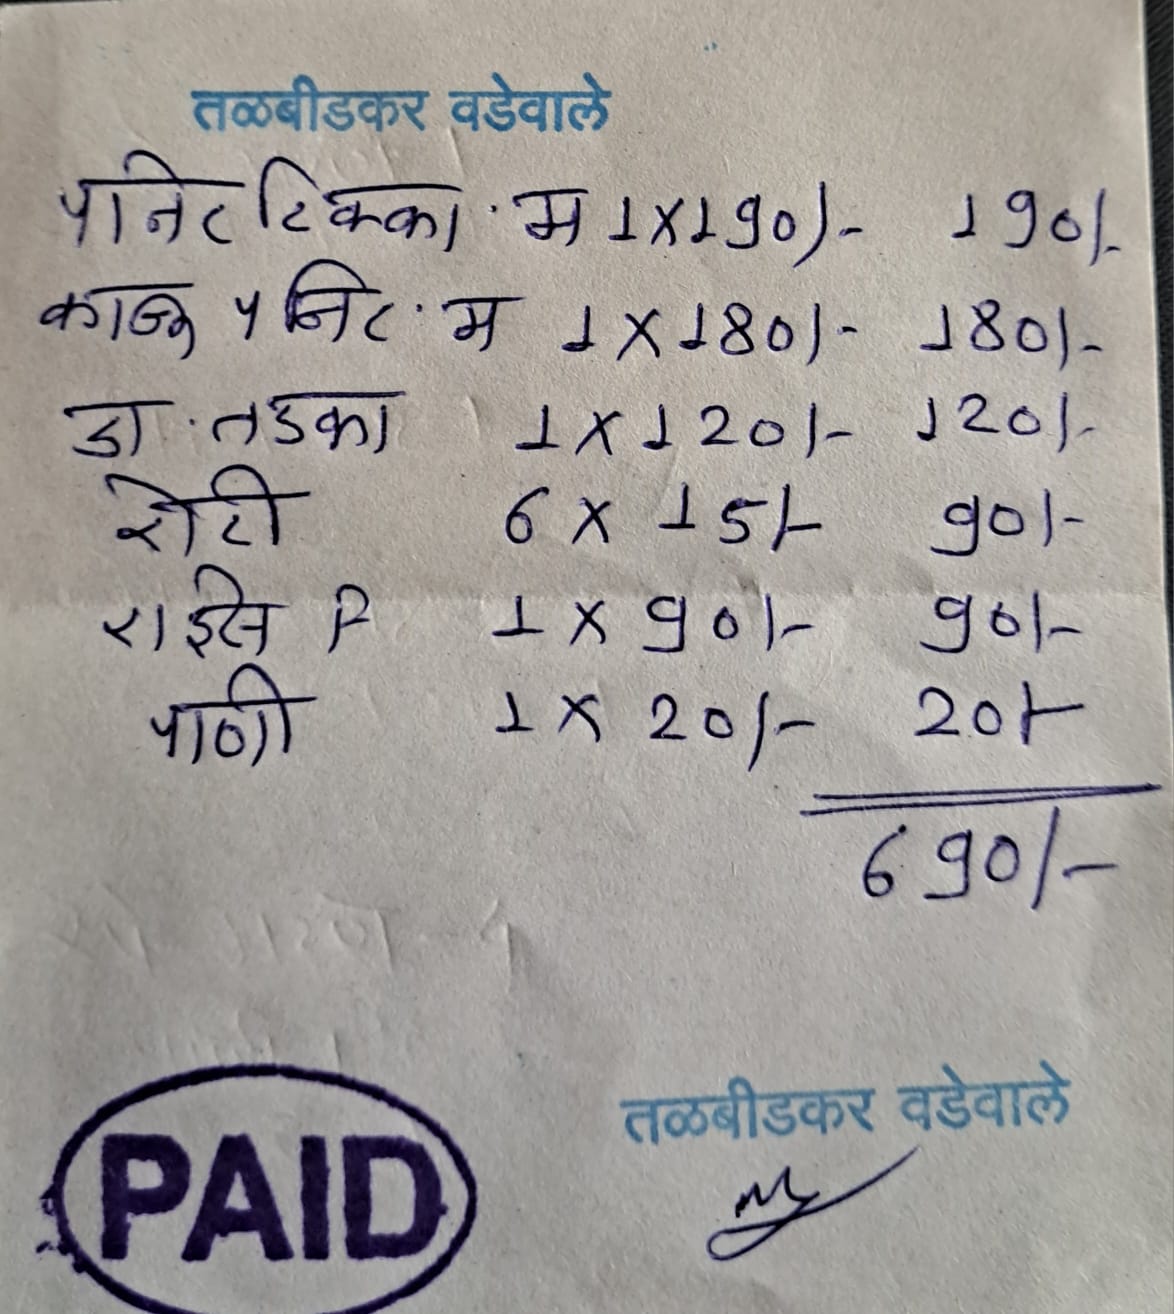 तळबीडकर वडेवाले
पनिर टिक्का . म 1 X 190/- 190/-
काजू पनिर . म 1 X 180/- 180/-
डा . तडका 1 X 120/- 120/-
रोटी 6 X 15/- 90/-
राईस P 1 X 90/- 90/-
पाणी 1 X 20/- 20/-
690/-
तळबीडकर वडेवाले
PAID